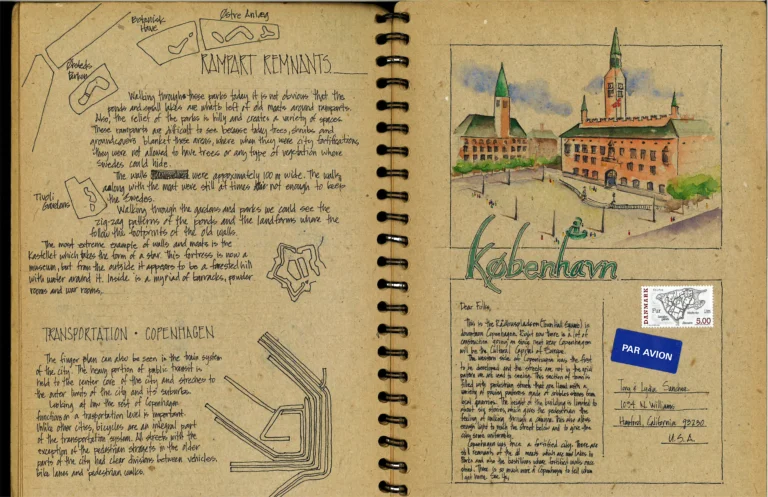 Botanisk
Have
Østre Anlæg
Ørsteds
Parken
RAMPART REMNANTS
Walking through these parks today it is not obvious that the
ponds and small lakes are what's left of old moats around ramparts.
Also, the relief of the parks is hilly and creates a variety of spaces.
These ramparts are difficult to see because today trees, shrubs and
groundcovers blanket these areas, where when they were city fortifications,
they were not allowed to have trees or any type of vegetation where
Swedes could hide.
The walls were approximately 100 m wide. The walls
along with the moat were still at times not enough to keep
the Swedes.
Tivoli
Gardens
Walking through the gardens and parks we could see the
zig-zag patterns of the ponds and the landforms where the
follow the footprints of the old walls.
The most extreme example of walls and moats is the
Kastellet which takes the form of a star. This fortress is now a
museum, but from the outside it appears to be a forested hill
with water around it. Inside is a myriad of barracks, powder
rooms and war rooms.
TRANSPORTATION • COPENHAGEN
The finger plan can also be seen in the train system
of the city. The heavy portion of public transit is
held to the center core of the city and streches to
the outer limits of the city and its suburbs.
Looking at how the rest of Copenhagen
functions on a transportation level is important.
Unlike other cities, bicycles are an integral part
of the transportation system. All streets with the
exception of the pedestrian streets in the older
parts of the city had clear divisions between vehicles,
bike lanes and pedestrian walks.
København
Dear Folks,
This is the (Town Hall Square) in
downtown Copenhagen. Right now there is a lot of
construction going on since next year Copenhagen
will be the Cultural Capital of Europe.
The western side of Copenhagen was the first
to be developed and the streets are not in the grid
pattern we are used to seeing. This section of town is
filled with pedestrian streets that are lined with a
variety of
local
about six stories, which gives the pedestrian the
feeling of walking through a
light to reach the street below and to give the
city some uniformity.
Copenhagen was once a fortified city. There are
still remnants of the old moats which are now lakes in
Parks and also the bastillions where fortified walls once
stood. There is so much more of Copenhagen to tell when
I get home. See Ya,
DANMARK
5.00
PAR AVION
Tony & Lydia Sanchez
1034 N. Williams
Hanford, California 93230
U.S.A.